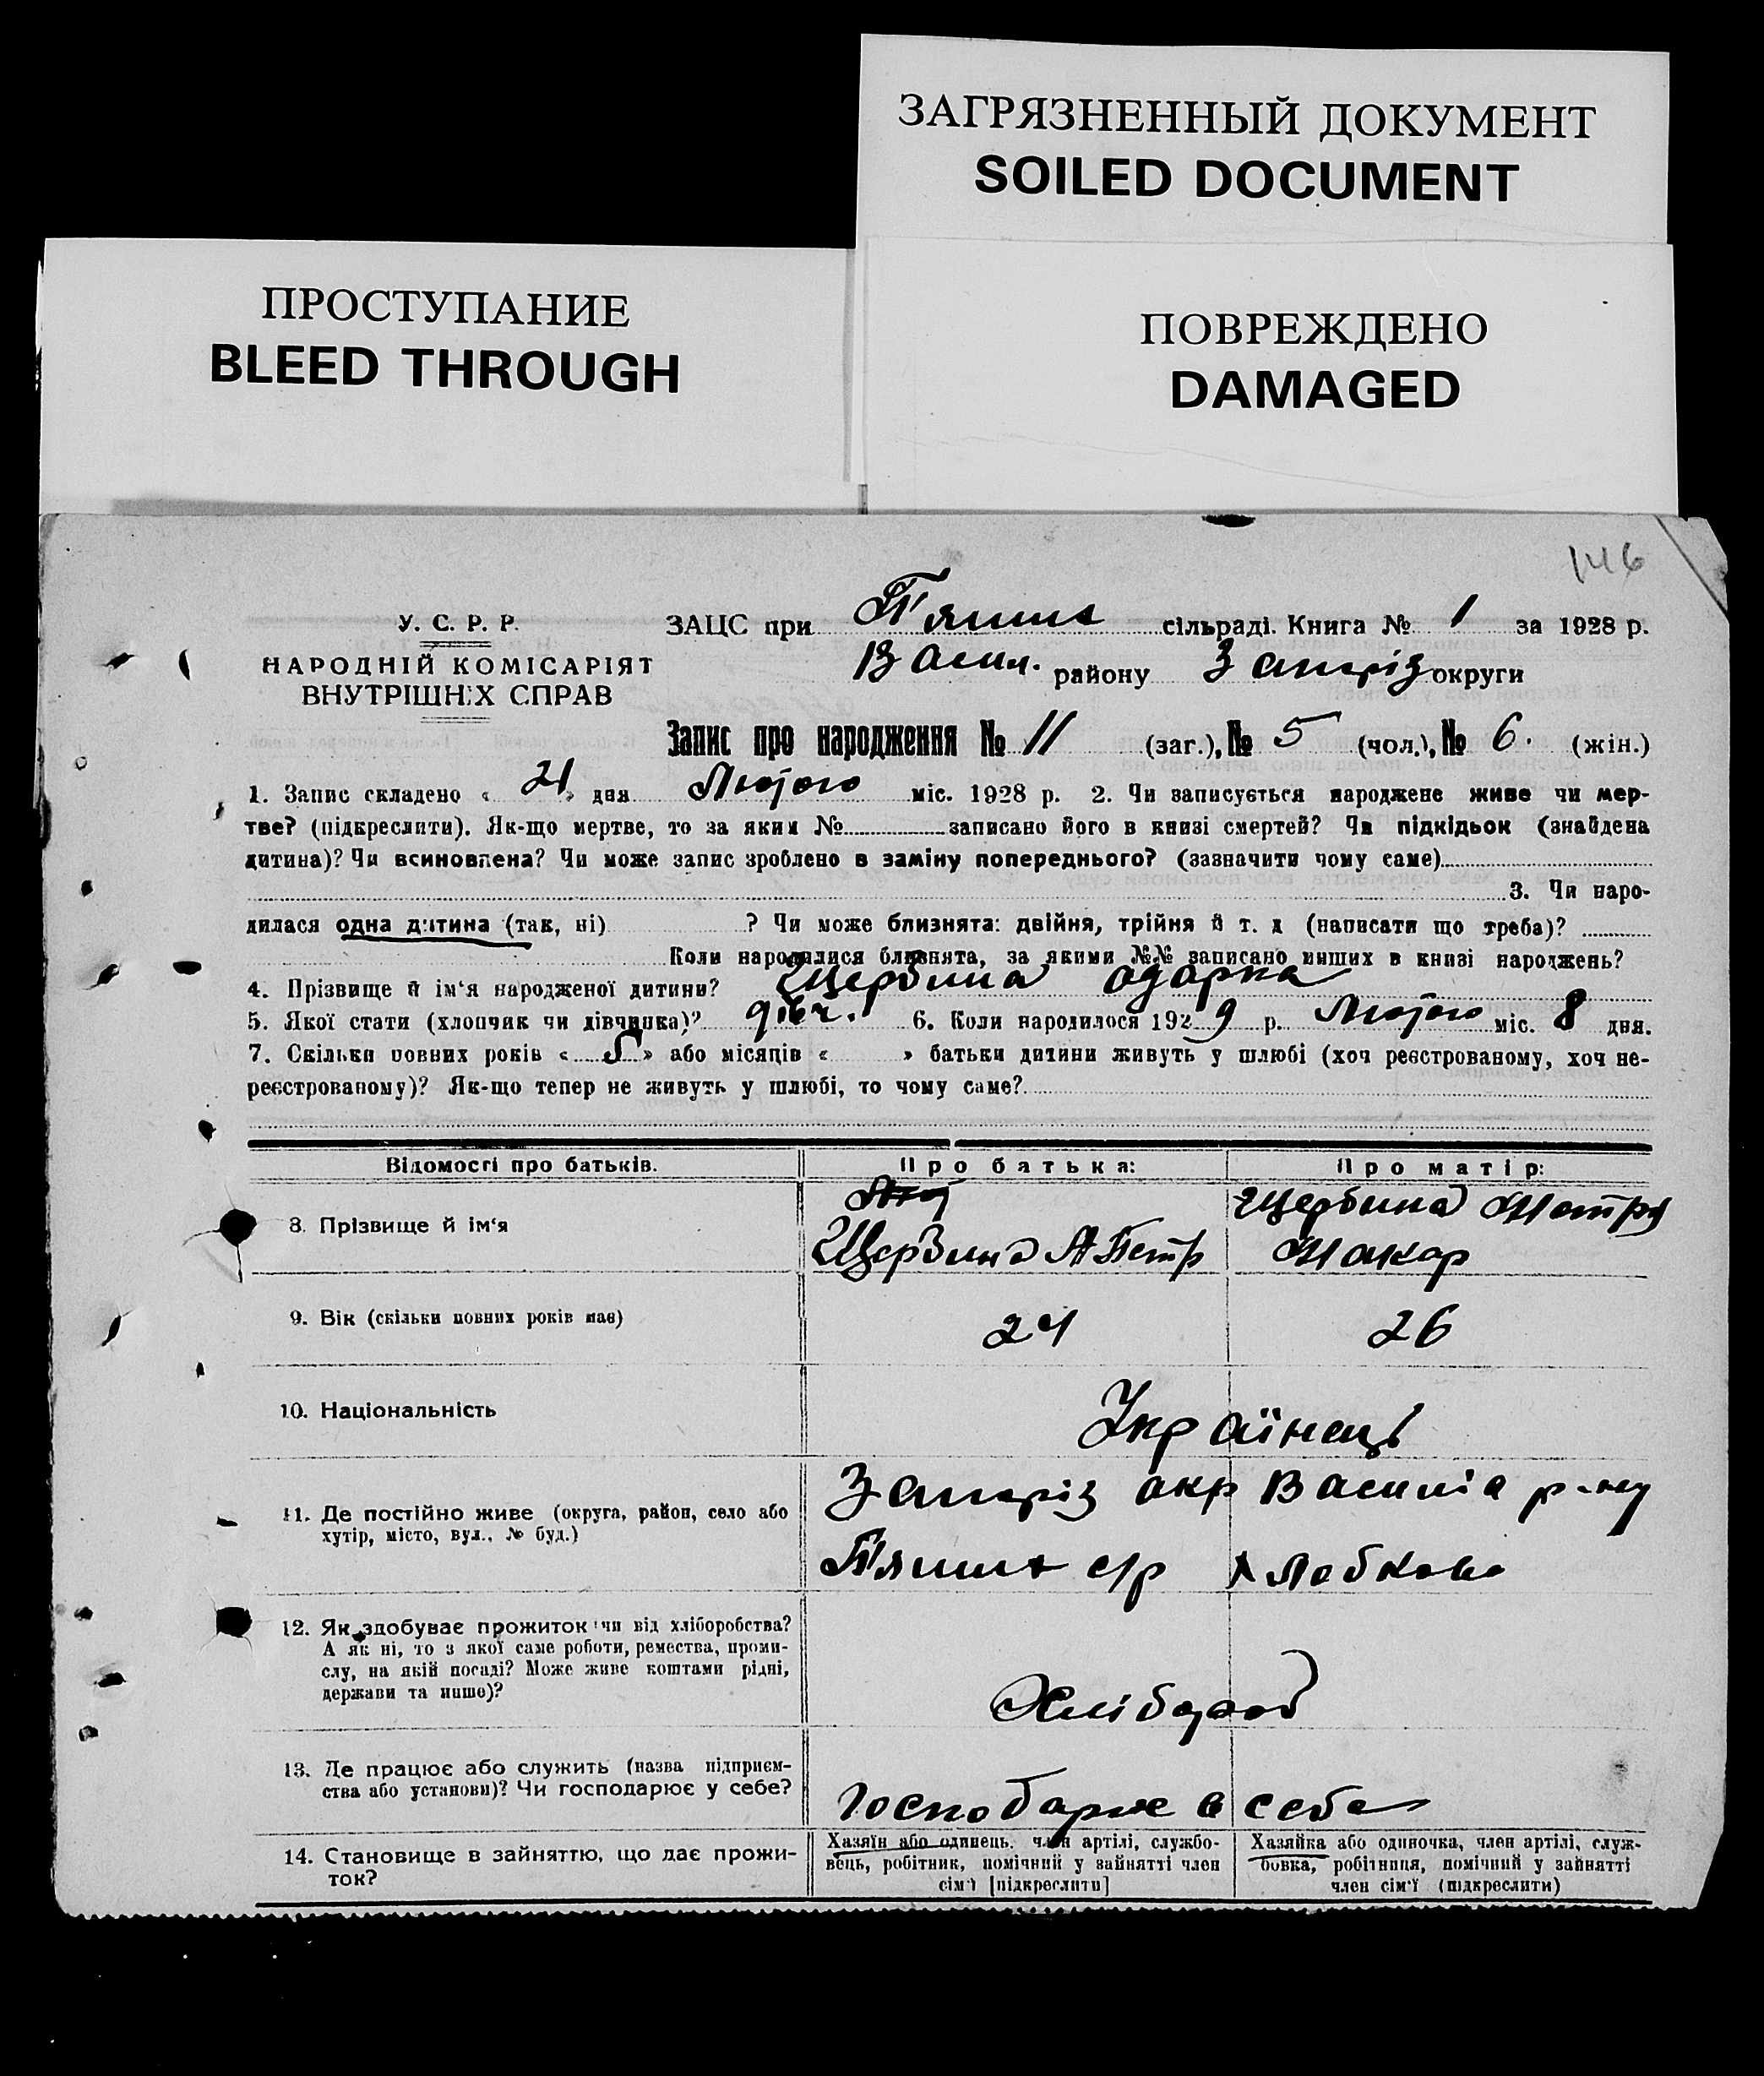 ЗАГРЯЗНЕННЫЙ ДОКУМЕНТ
SOILED DOCUMENT
ПРОСТУПАНИЕ
BLEED THROUGH
ПОВРЕЖДЕНО
DAMAGED
146
У. С. Р. Р.
НАРОДНІЙ КОМІСАРІЯТ
ВНУТРІШНІХ СПРАВ
ЗАЦС при сільраді. Книга № 1 за 1928 р.
Васил. району Запоріз округи
Запис про народження № 11 (заг.), № 5 (чол.), № 6. (жін.)
1. Запис складено « 21 » дня Лютого міс. 1928 р. 2. Чи записується народжене живе чи мер-
тве? (підкреслити). Як-що мертве, то за яким № записано його в книзі смертей? Чи підкідьок (знайдена
дитина)? Чи всиновлена? Чи може запис зроблено в заміну попереднього? (зазначити чому саме)
3. Чи наро-
дилася одна дитина (так, ні) ? Чи може близнята: двійня, трійня й т. д (написати що треба)?
Коли народилися близнята, за якими №№ записано инших в книзі народжень?
4. Прізвище й ім‘я народженої дитини? Щербина Одарка
5. Якої стати (хлопчик чи дівчинка)? дівч. 6. Коли народилося 1929 р. Лютого міс. 8 дня.
7. Скільки повних років « 5 » або місяців « » батьки дитини живуть у шлюбі (хоч реєстрованому, хоч не-
реєстрованому)? Як-що тепер не живуть у шлюбі, то чому саме?
Відомості про батьків. Про батька: Про матір:
8. Прізвище й ім‘я Щербина А Петр Щербина Мотря
Макар
9. Вік (скільки повних років має) 24 26
10. Національність Українець
11. Де постійно живе (округа, район, село або
хутір, місто, вул., № буд.)
Запоріз окр Василів р-ну
с/р х Лобкове
12. Як здобуває прожиток чи від хліборобства?
А як ні, то з якої саме роботи, ремества, проми-
слу, на якій посаді? Може живе коштами рідні,
держави та инше)?
Хлібороб
13. Де працює або служить (назва підприєм-
ства або установи)? Чи господарює у себе?
Господарює в себе
14. Становище в зайняттю, що дає прожи-
ток?
Хазяїн або одинець, член артілі, службо-
вець, робітник, помічний у зайнятті член
сім‘ї [підкреслити]
Хазяйка або одиночка, член артілі, служ-
бовка, робітниця, помічний у зайнятті
член сім‘ї (підкреслити)